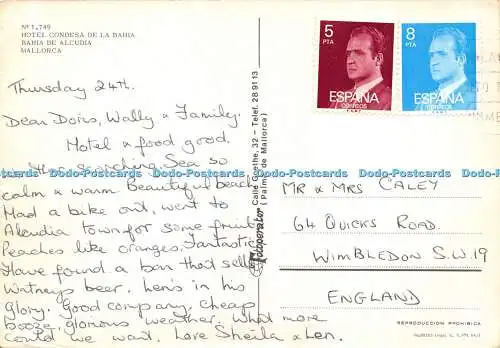 Nº 1.749
HOTEL CONDESA DE LA BAHIA
BAHIA DE ALCUDIA
MALLORCA
Thursday 24th.
Dear Doris, Wally & Family.
Hotel & food good.
scorching. Sea so
calm & warm Beautiful beach
Had a bike out, went to
Alcudia town for some fruit
Peaches like oranges. Fantastic
Have found a bar that sells
Watneys beer. Len's in his
glory. Good company, cheap
booze, glorious weather. What more
could we want. Love Sheila & Len.
Fotoperator
Calle Goethe, 32 - Telef. 28 91 13
(Palma de Mallorca)
5
PTA
ESPAÑA
CORREOS
8
PTA
ESPAÑA
CORREOS
MR & MRS CALEY
64 QUICKS ROAD.
WIMBLEDON S.W.19
ENGLAND
REPRODUCCION PROHIBIDA
Dodo-Postcards Dodo-Postcards Dodo-Postcards Dodo-Postcards Dodo-Postcards Dodo-Postcards